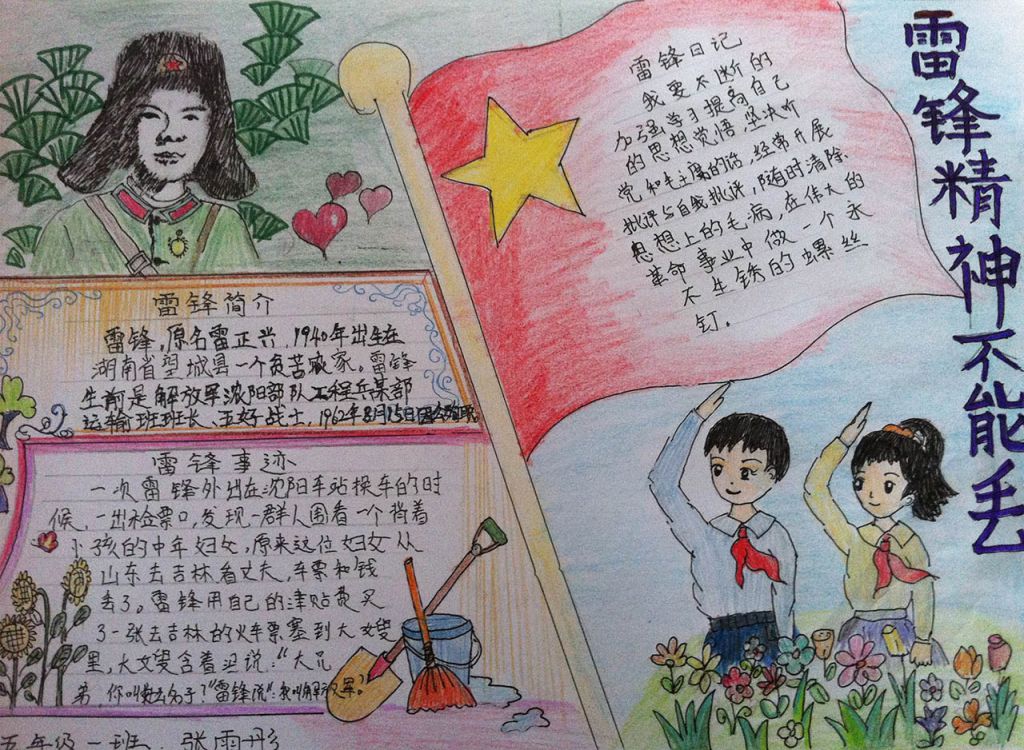 雷锋精神不能丢
雷锋日记
我要不断的
加强学习提高自己
的思想觉悟,坚决听
党和毛主席的话,经常开展
批评与自我批评,随时清除
思想上的毛病,在伟大的
革命事业中做一个永
不生锈的螺丝
钉。
雷锋简介
雷锋,原名雷正兴,1940年出生在
湖南省望城县一个贫苦农家。雷锋
生前是解放军沈阳部队工程兵某部
运输班班长、五好战士,1962年8月15日因公殉职
雷锋事迹
一次雷锋外出在沈阳车站换车的时
候,一出检票口,发现一群人围着一个背着
小孩的中年妇女,原来这位妇女从
山东去吉林看丈夫,车票和钱
丢了。雷锋用自己的津贴费买
了一张去吉林的火车票塞到大嫂
里,大嫂含着泪说:“大兄
弟,你叫什么名子?”雷锋说:“我叫解放军。”
五年级一班 张雨彤